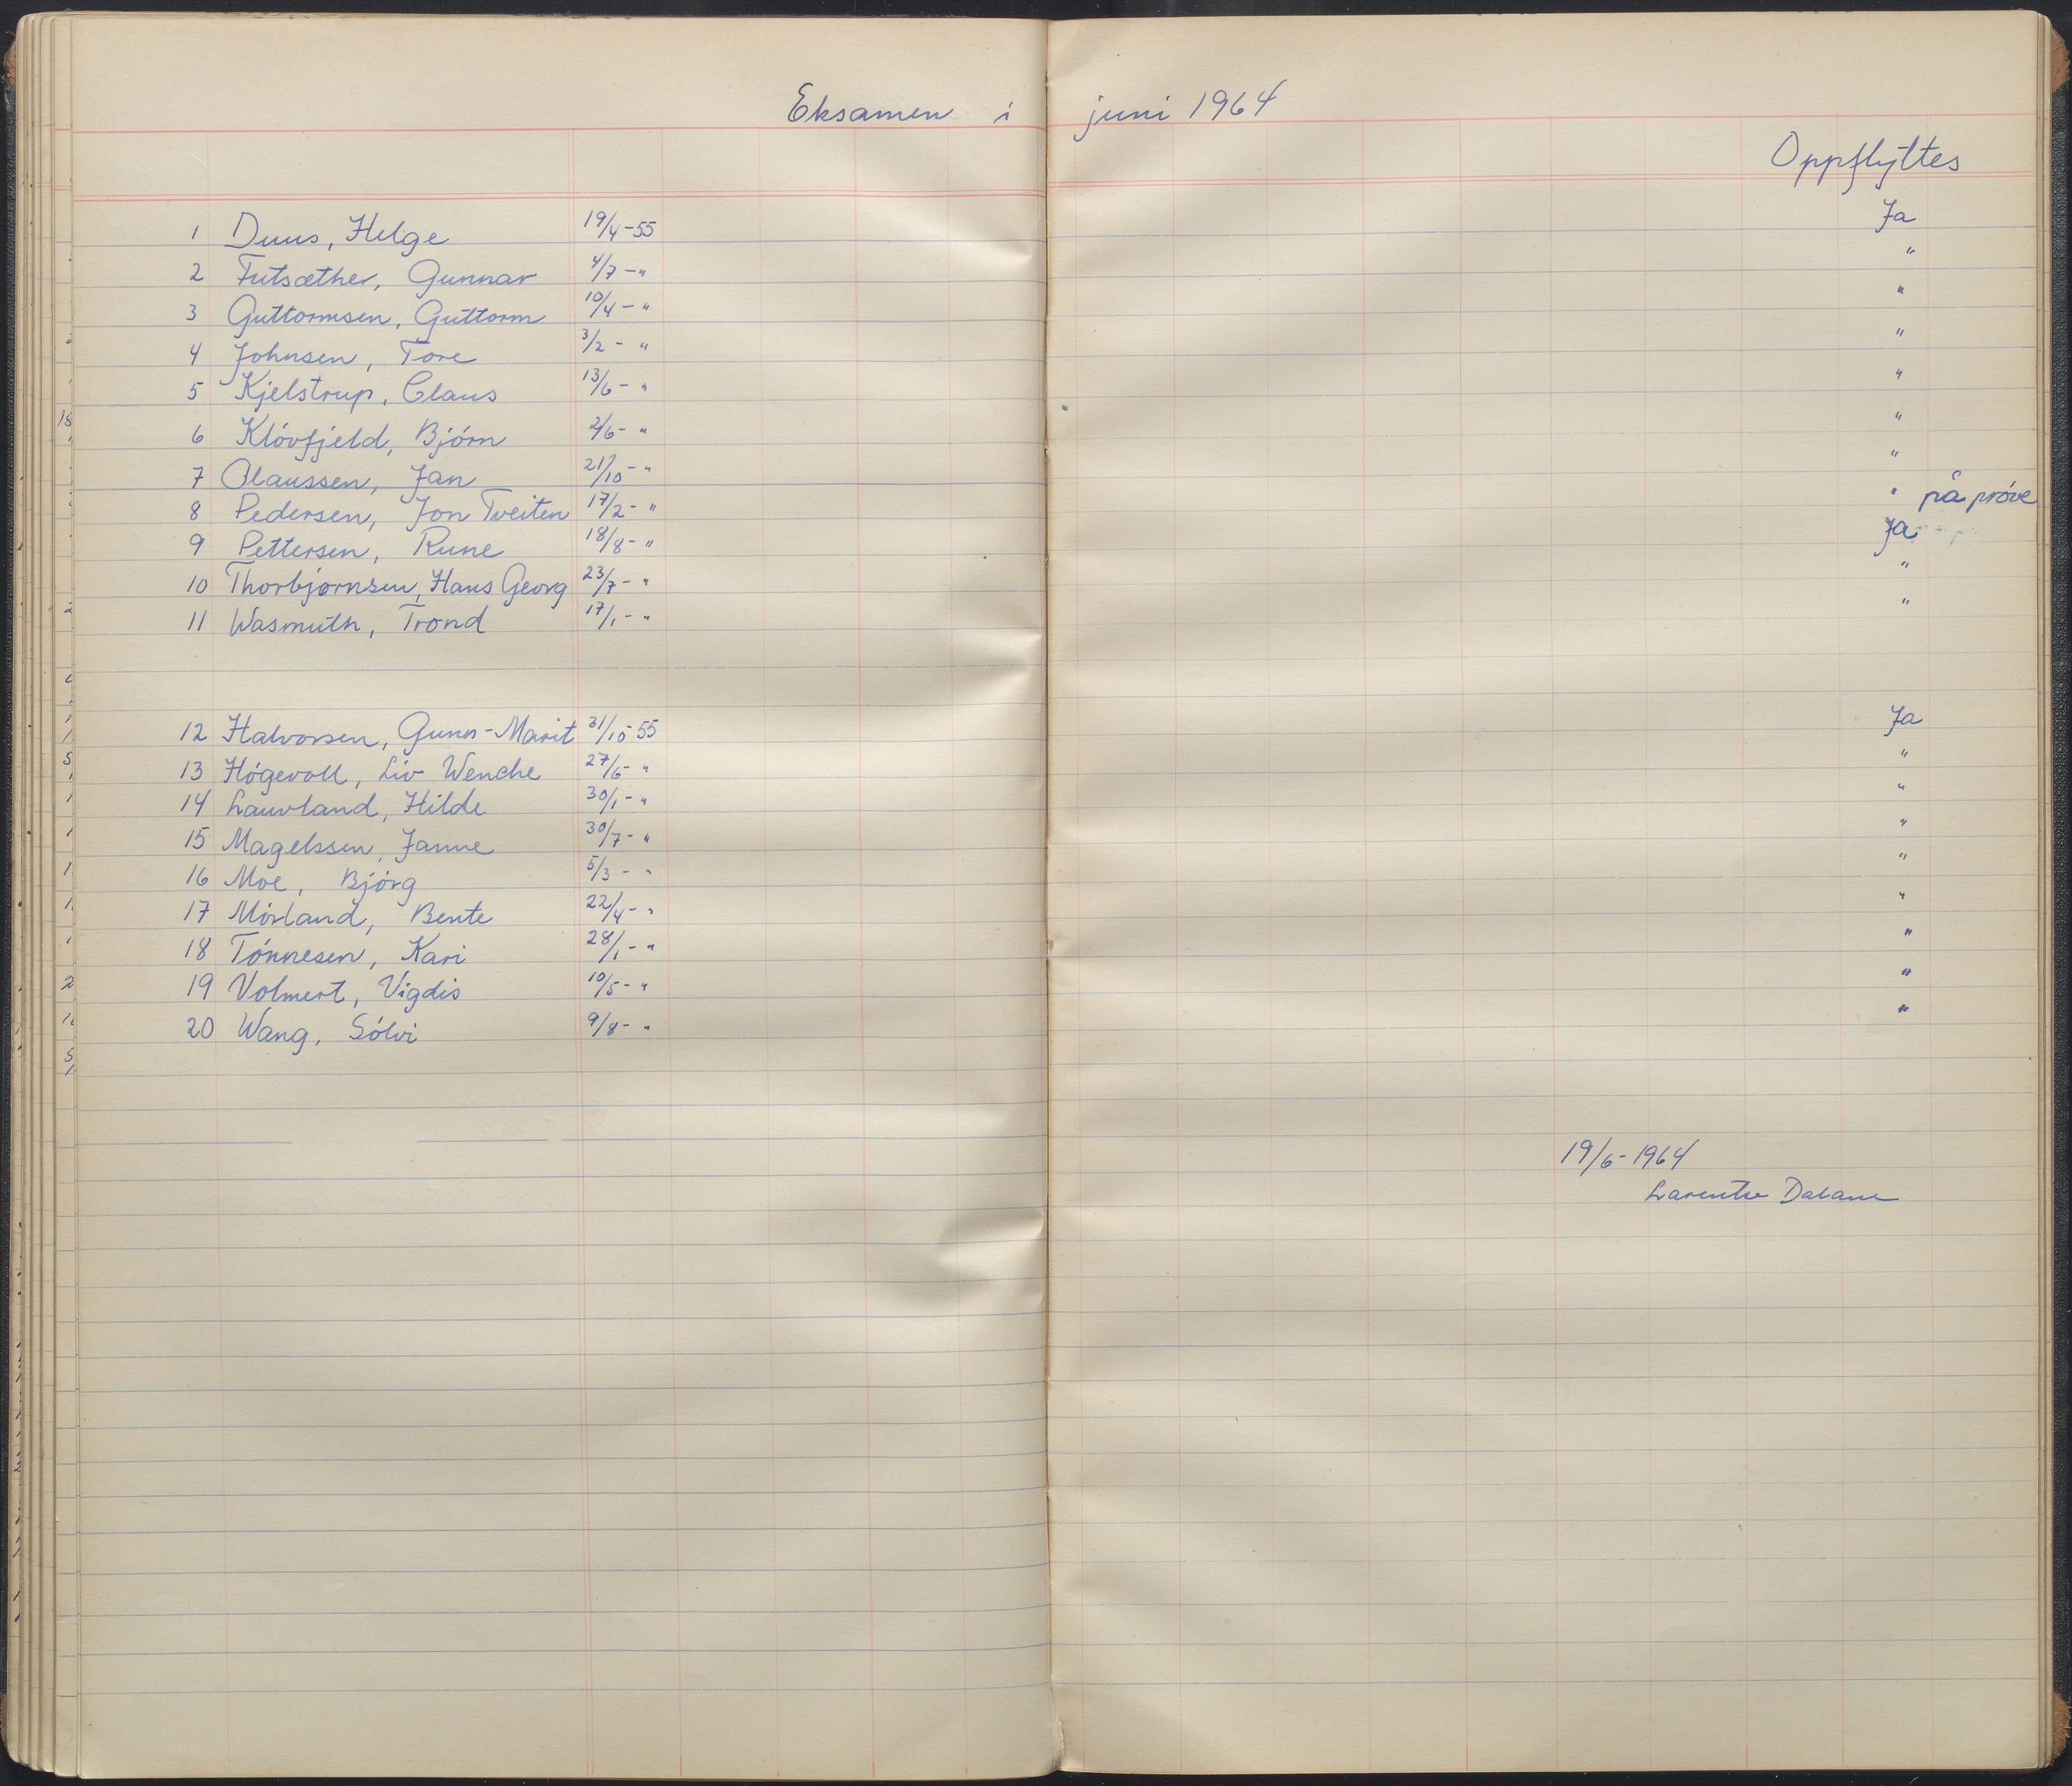 Eksamen i juni 1964
Oppflyttes
1 Duus, Helge 19/4-55 Ja
2 Futsæther, Gunnar 4/7 - " "
3 Guttormsen, Guttorm 10/4 - " "
4 Johnsen, Tore 3/2 - " "
5 Kjelstrup, Claus 13/6 - " "
6 Klóvfjeld, Bjórn 2/6 - " "
7 Olaussen, Jan 21/10 - " "
8 Pedersen, Jon Tveiten 17/2 - " " på próve
9 Pettersen, Rune 18/8 - " Ja
10 Thorbjørnsen, Hans Georg 23/7 - " "
11 Wasmuth, Trond 17/1 - " "
12 Halvorsen, Gunn-Marit 31/10-55 Ja
13 Hógevoll, Liv Wenche 27/6 - " "
14 Lauvland, Hilde 30/1 - " "
15 Magelssen, Janne 30/7 - " "
16 Moe, Bjórg 5/3 - " "
17 Mórland, Bente 22/4 - " "
18 Tónnesen, Kari 28/1 - " "
19 Volmert, Vigdis 10/5 - " "
20 Wang, Sólvi 9/8 - " "
19/6-1964
Larentse Dalane